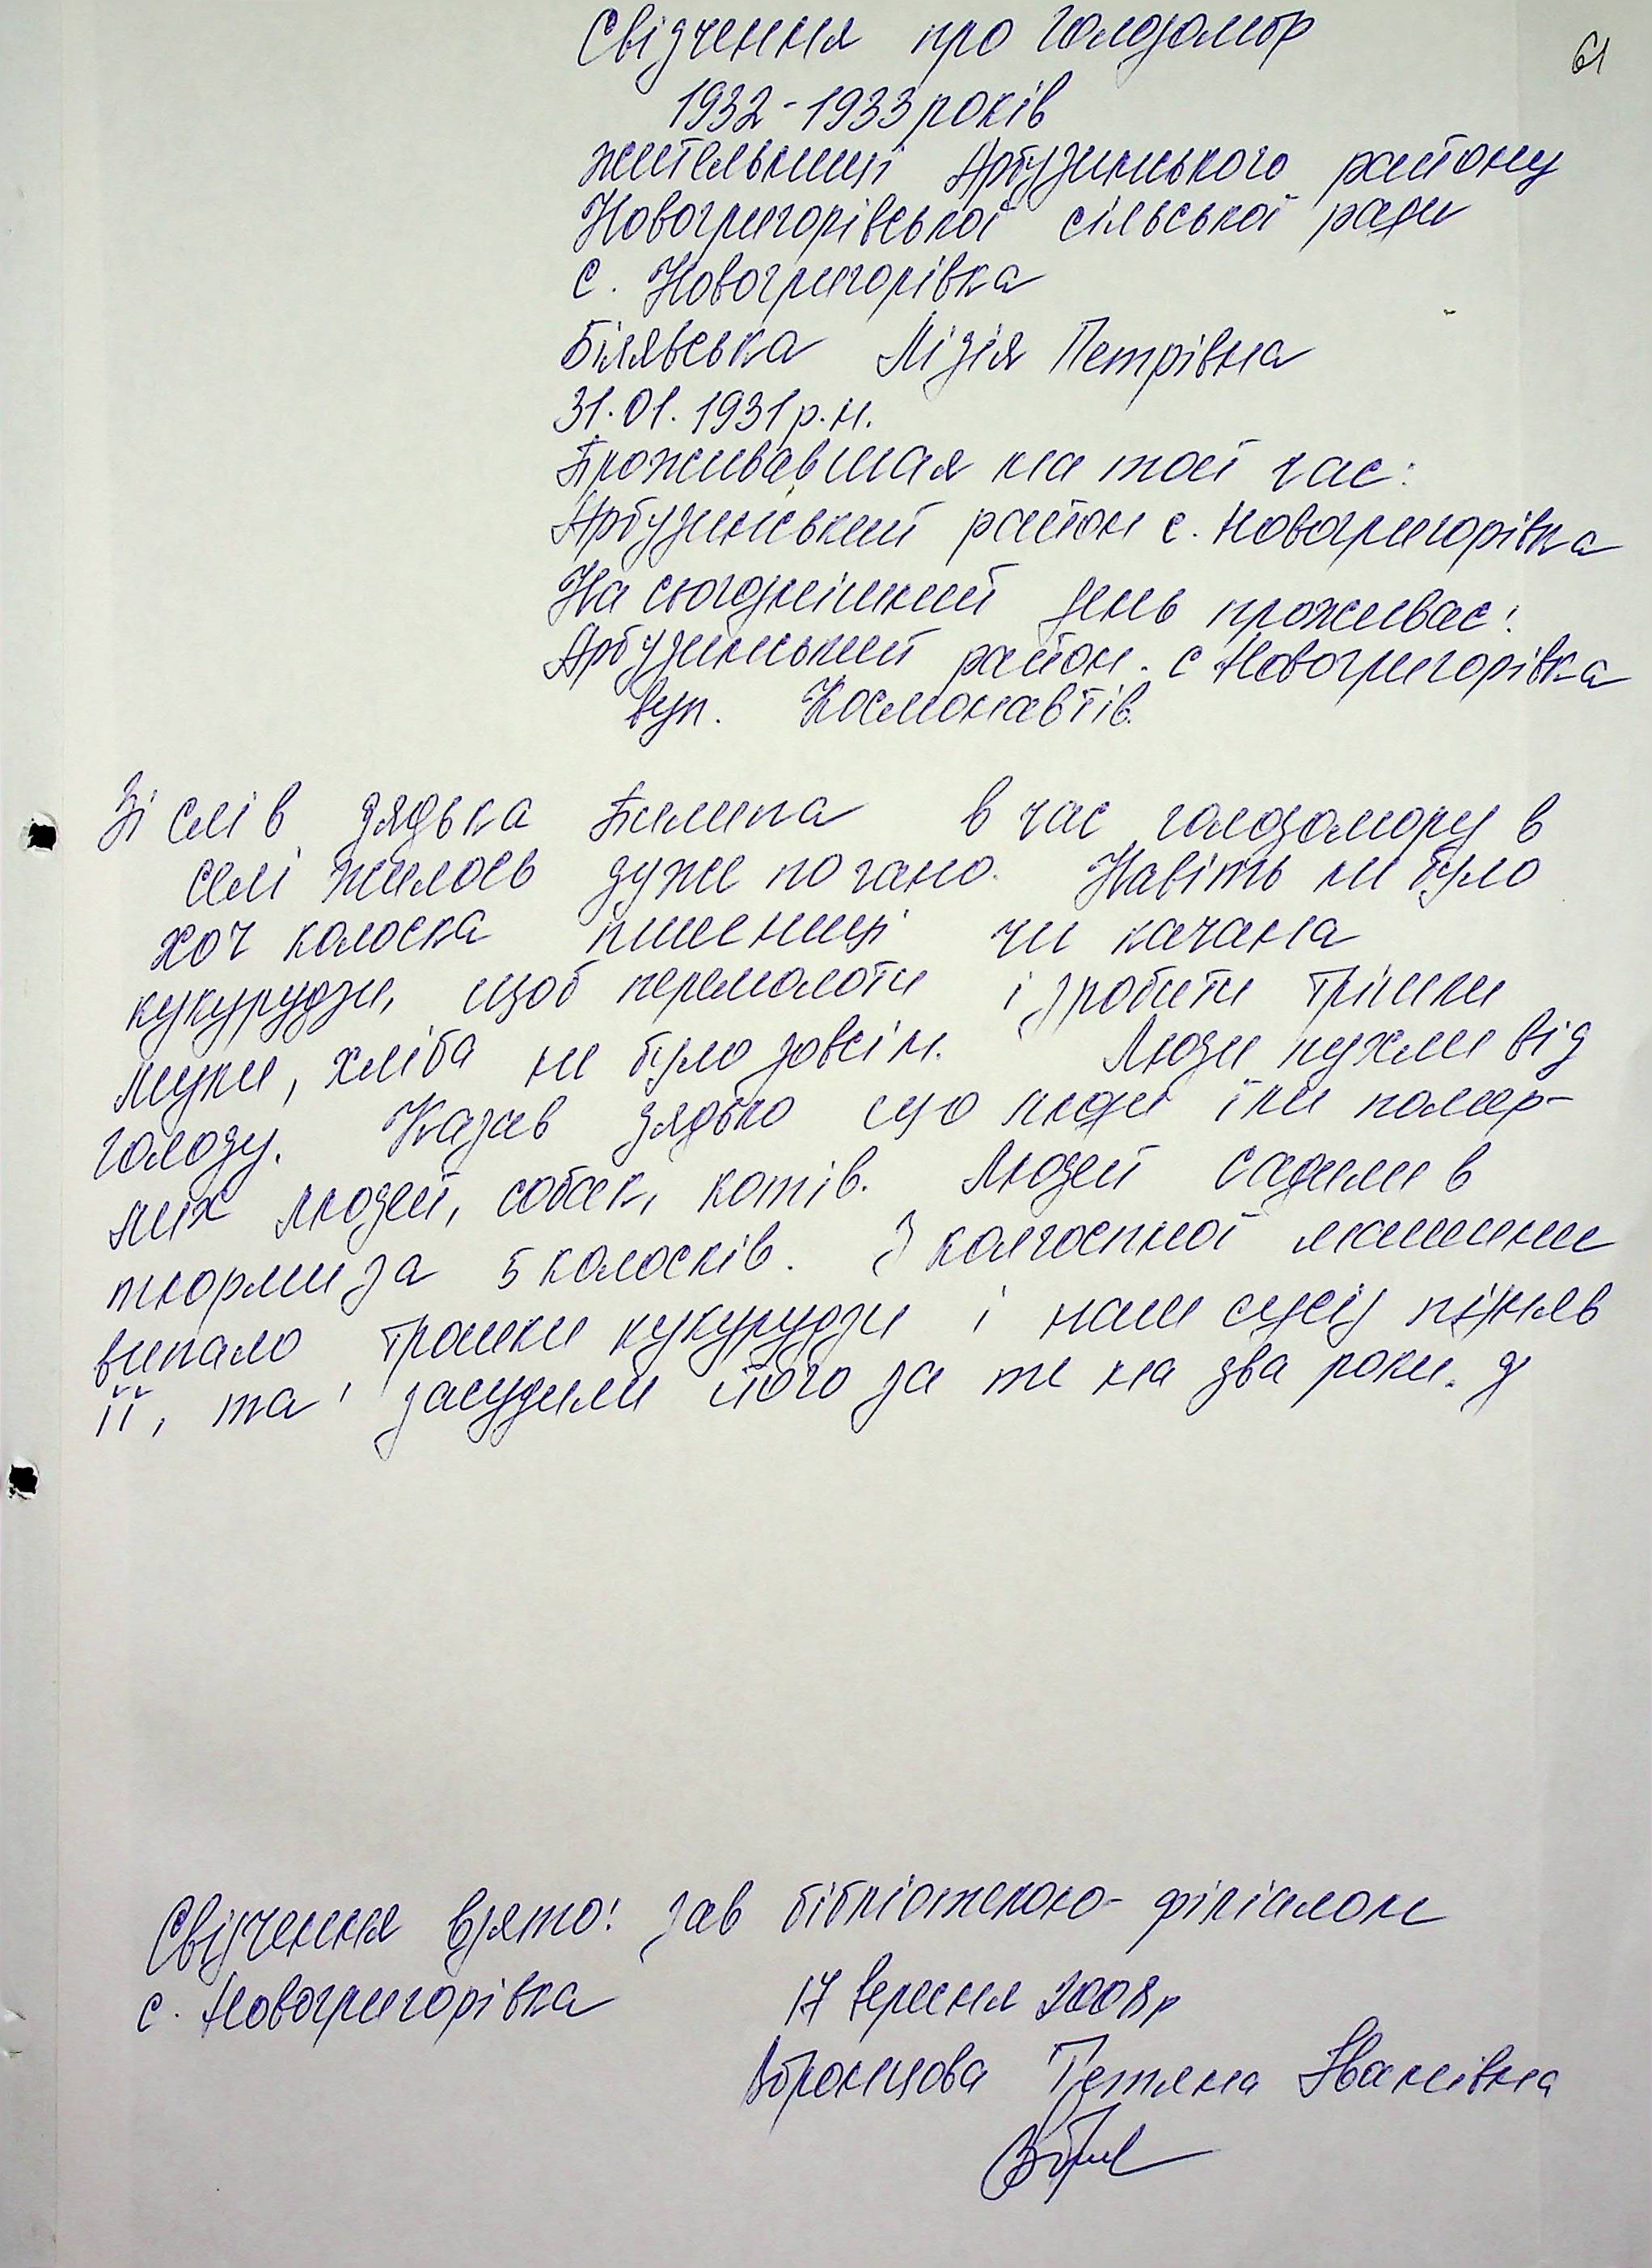 61
Свідчення про голодомор
1932-1933 років
жительниці Арбузинського району
Новогригорівської сільської ради
с. Новогригорівка
Білявська Лідія Петрівна
31.01.1931 р.н.
Проживавшая на той час:
Арбузинський район с. Новогригорівка
На сьогоднішний день проживає:
Арбузинський район. с Новогригорівка
вул. Космонавтів.
Зі слів дядька Пилипа в час голодомору в
селі жилось дуже погано. Навіть не було
хоч колоска пшениці чи качана
кукурудзи, щоб перемолоти і зробити трішки
муки, хліба не було зовсім. Люди пухли від
голоду. Казав дядько що люди їли помер-
лих людей, собак, котів. Людей садили в
тюрми за 5 колосків. З колгоспної машини
випало трошки кукурудзи і наш сусід підняв
її, та засудили його за те на два роки.
Свідчення взято: зав бібліотекою-філіалом
с. Новогригорівка 17 вересня 2008р
Воронцова Тетяна Іванівна